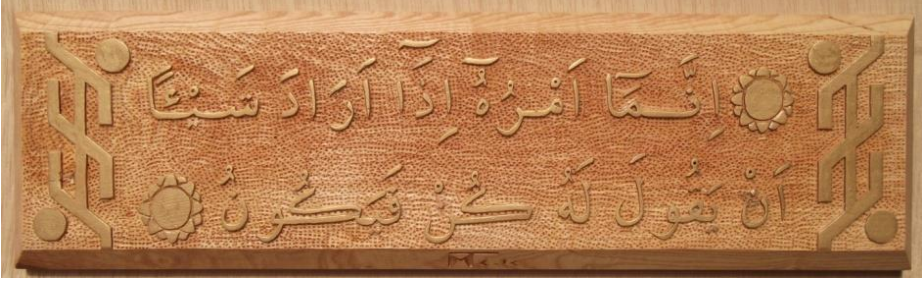 اِنَّـمَٓا اَمْرُهُٓ اِذَٓا اَرَادَ شَيْـًٔا
اَنْ يَقُولَ لَهُ كُنْ فَيَكُونُ